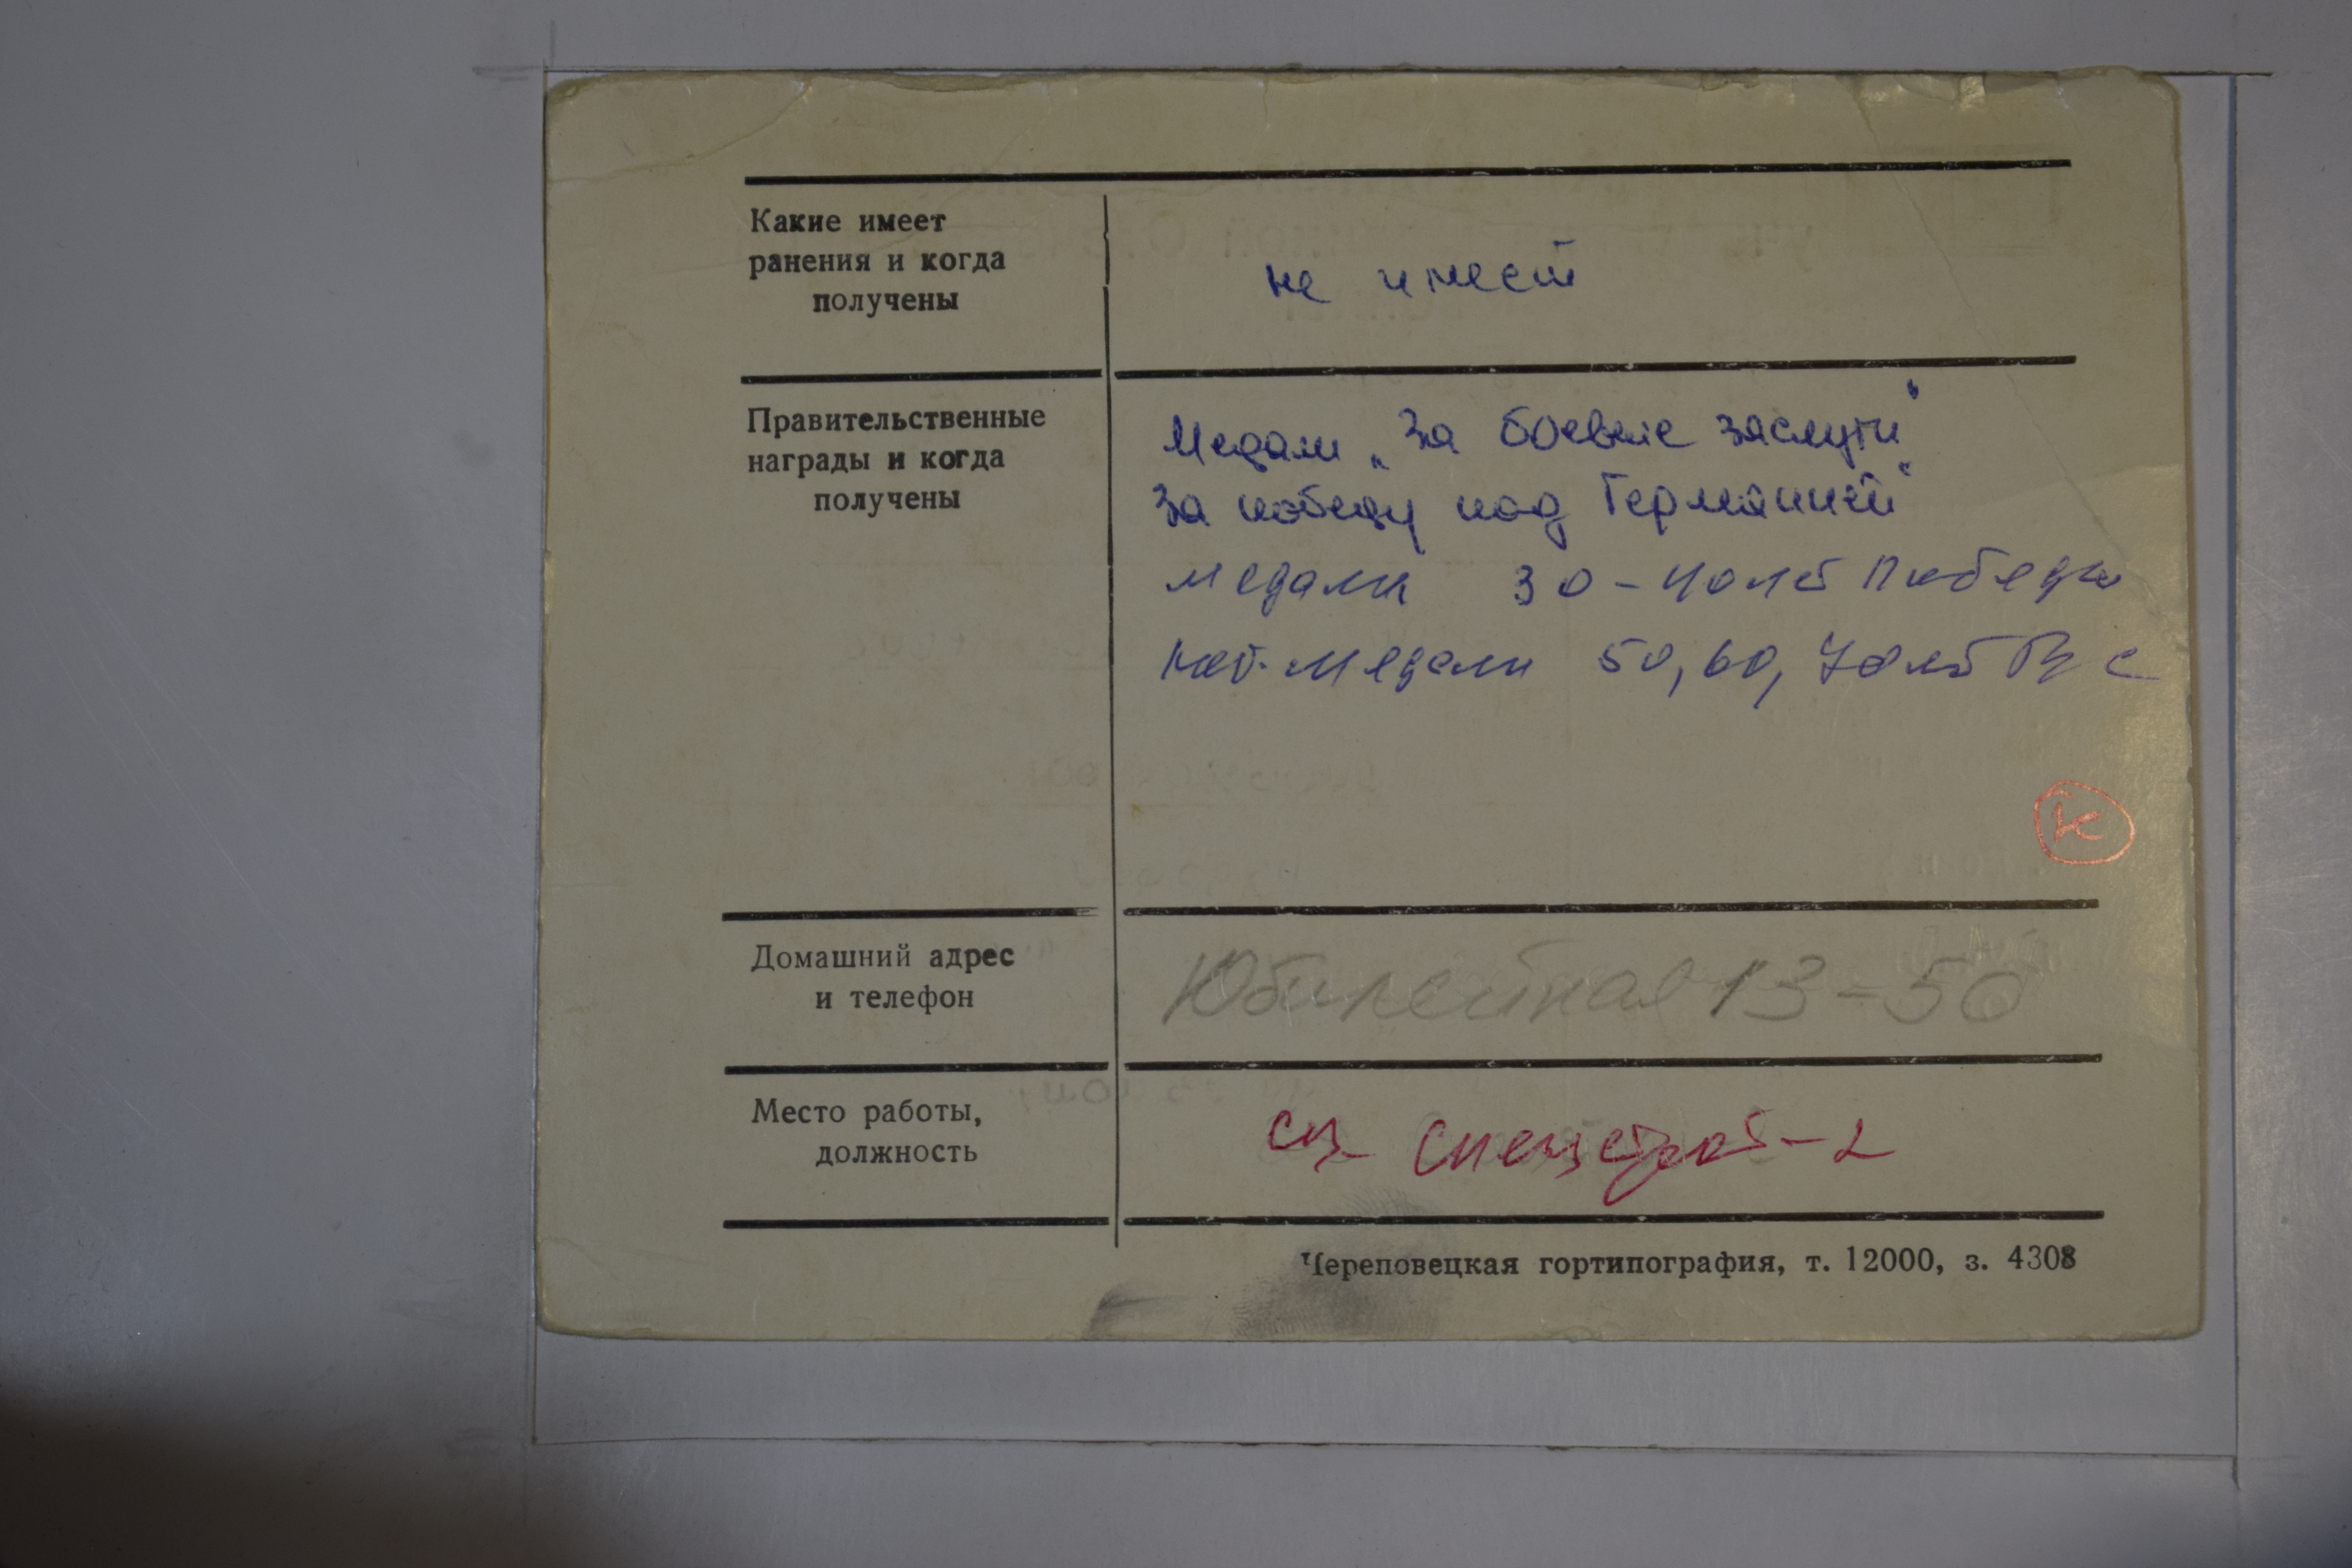 Какие имеет
ранения и когда
получены
не имеет
Правительственные
награды и когда
получены
Медали „За боевые заслуги"
За победу над Германией"
медали 30-40 лет Победы
юб. медали 50, 60, 70 лет ВС
к
Домашний адрес
и телефон
Юбилейная 13-50
Место работы,
должность
Спецстрой-2
Череповецкая гортипография, т. 12000, з. 4308